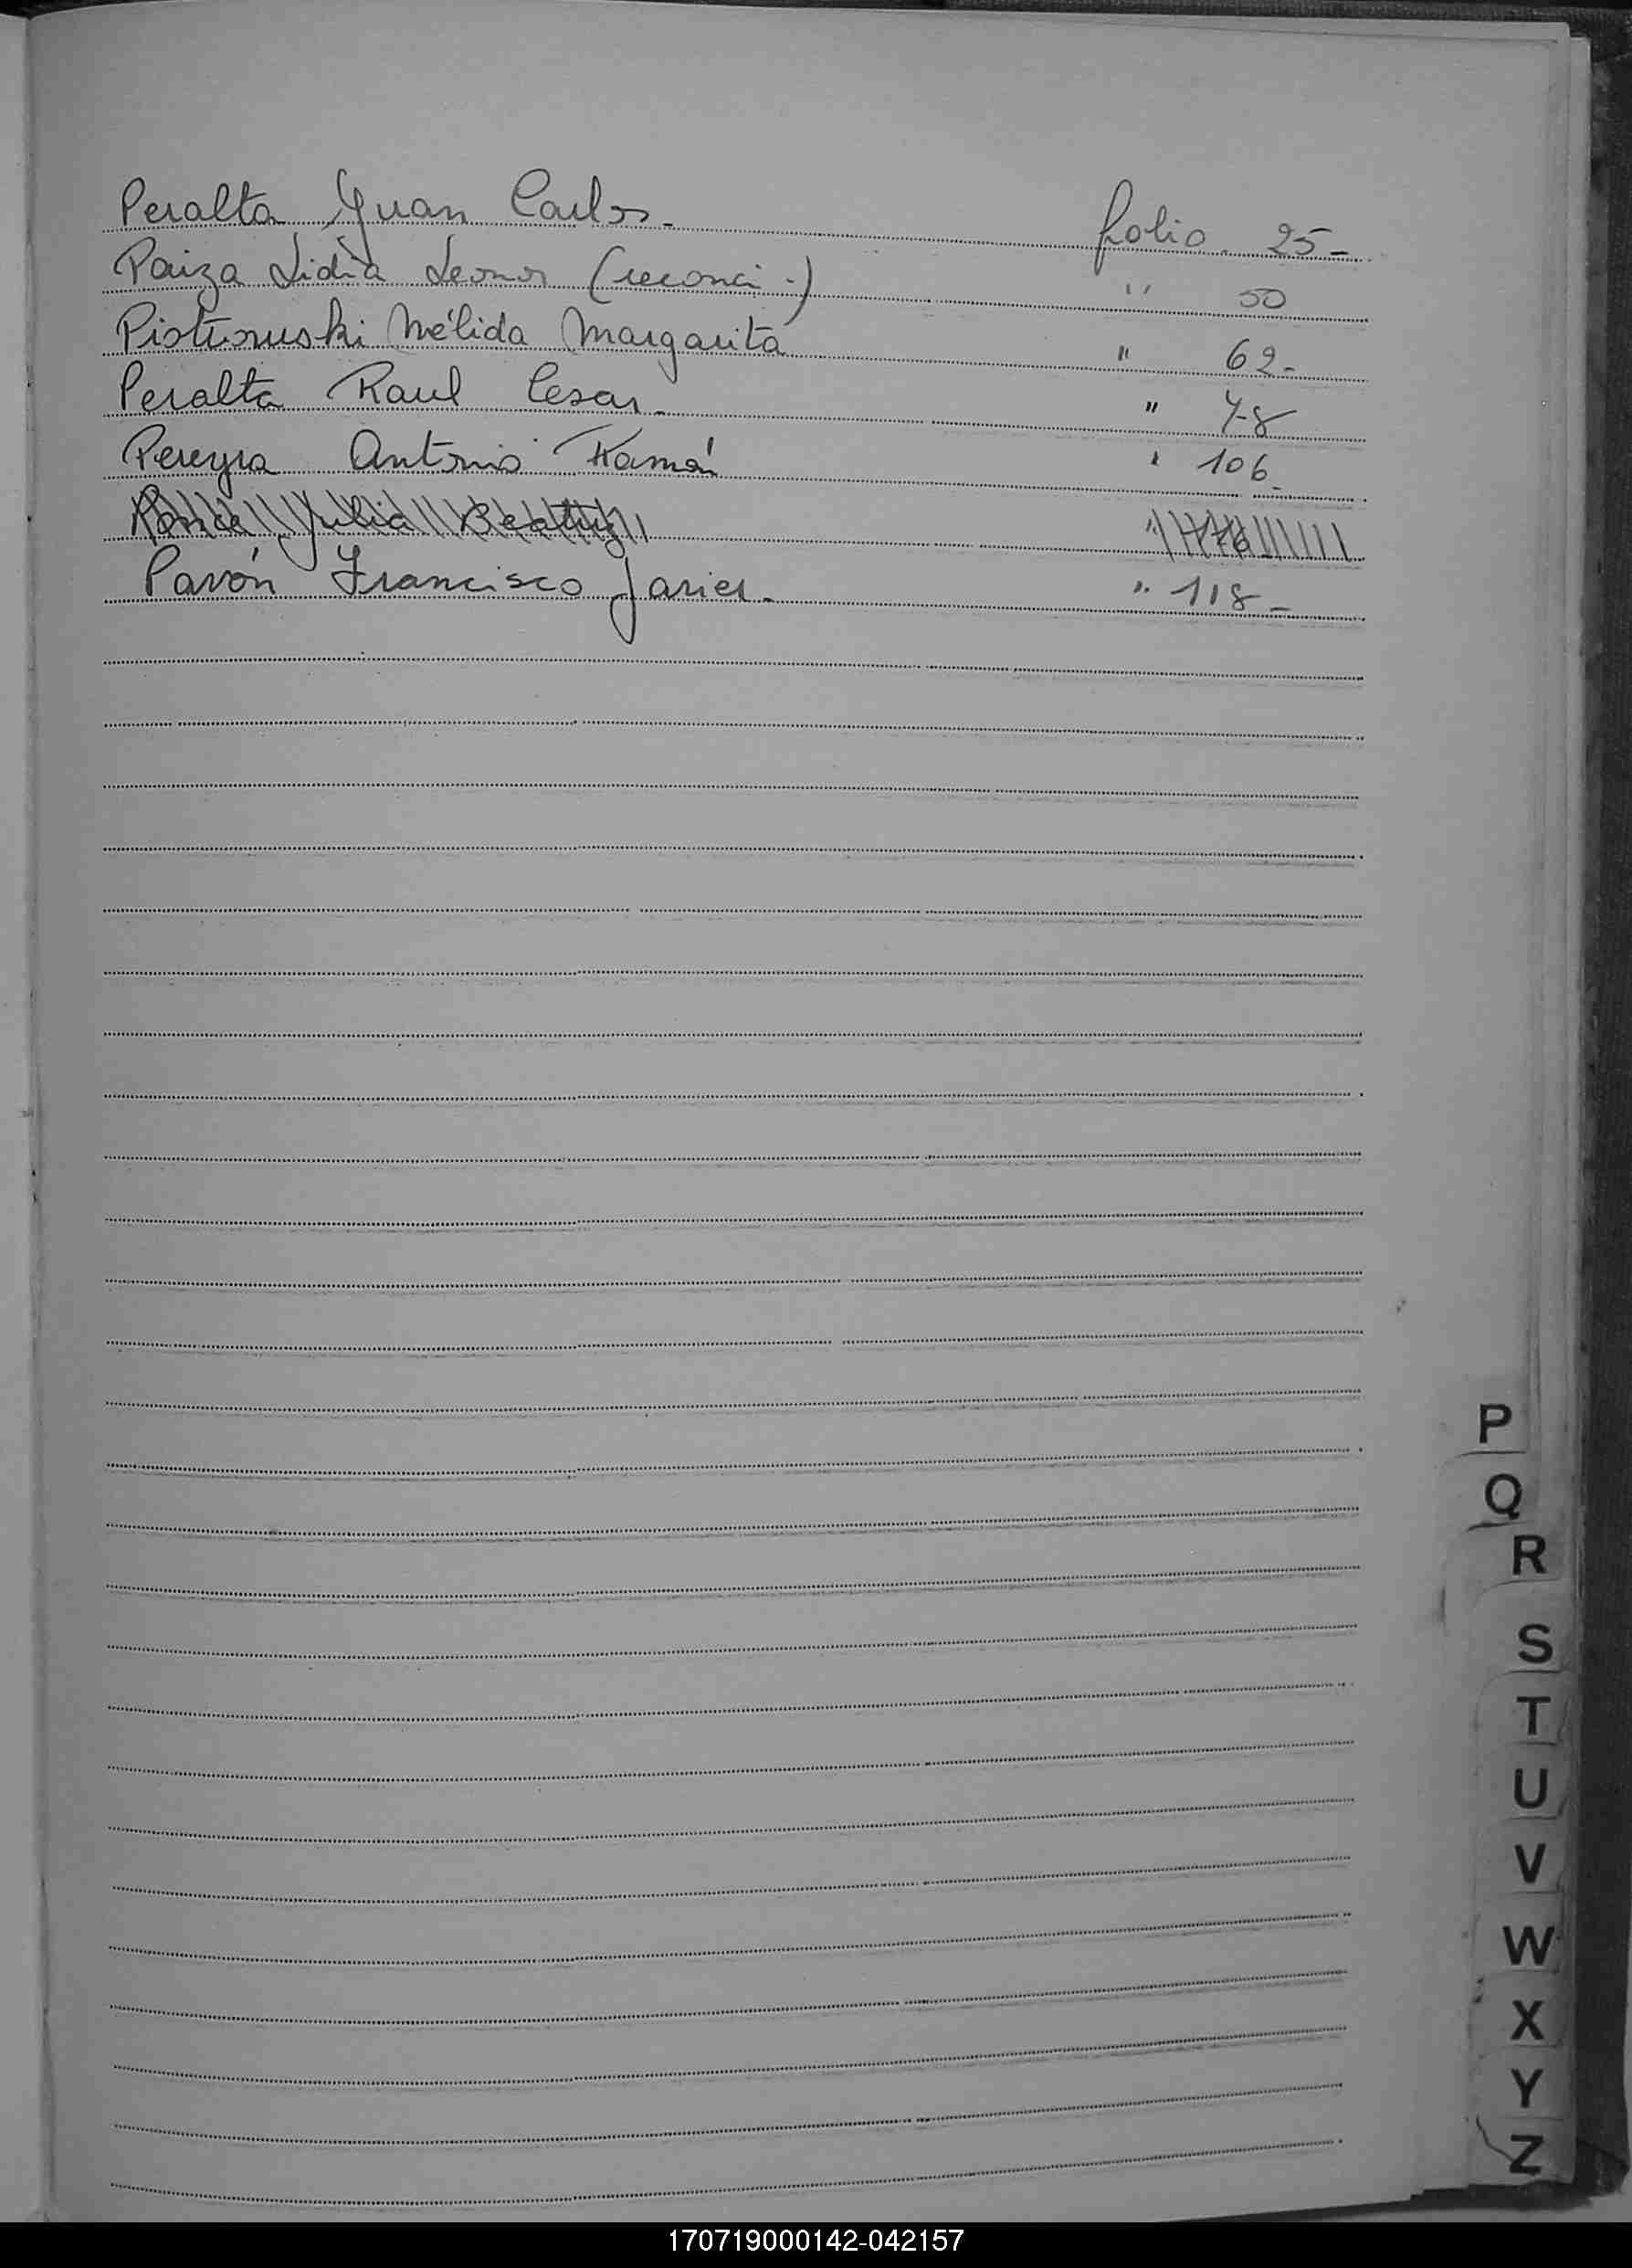 Peralta Juan Carlos - folio. 25-
Paiza Lidia Leonor (reconoci.) " 50
Piotrowski Nélida Margarita " 62-
Peralta Raul Cesar - " 78
Pereyra Antonio Ramón " 106-
Ponce Julia Beatriz "
Pavón Francisco Javier - " 118-
P
Q
R
S
T
U
V
W
X
Y
Z
170719000142-042157